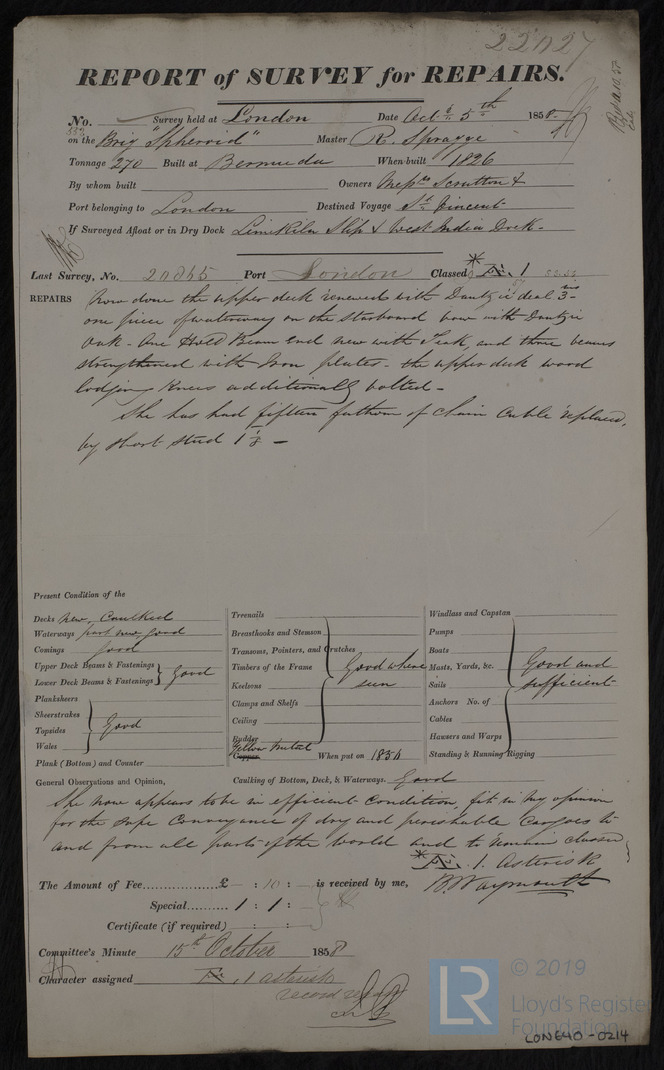 22027
REPORT of SURVEY for REPAIRS.
No. Survey held at London Date Oct 5th 1858
on the Brig "Spheroid" Master R. Spragge
Tonnage 270 Built at Bermuda When built 1826
By whom built Owners Messrs Scrutton &
Port belonging to London Destined Voyage St Vincent
If Surveyed Afloat or in Dry Dock Limekiln Slip & West India Dock -
Last Survey, No. 20865 Port London Classed * Æ. 1
REPAIRS Now done the upper deck renewed with Dantzic deal 3 ins
one piece of waterway on the starboard bow with Dantzic
Oak - One Hold Beam end new with Teak, and three beams
strengthened with Iron plates - the upper deck wood
lodging Knees additionally bolted -
She has had fifteen fathom of Chain Cable replaced,
by short stud 1 1/8 -
Present Condition of the
Decks New, Caulked
Waterways part new, good
Comings good
Upper Deck Beams & Fastenings
Lower Deck Beams & Fastenings } Good
Planksheers
Sheerstrakes
Topsides } Good
Wales
Plank (Bottom) and Counter
Treenails
Breasthooks and Stemson
Transoms, Pointers, and Crutches
Timbers of the Frame } Good where
Keelsons seen
Clamps and Shelfs
Ceiling
Rudder
Yellow Metal
Copper When put on 1854
Caulking of Bottom, Deck, & Waterways. Good
Windlass and Capstan
Pumps
Boats
Masts, Yards, &c. } Good and
Sails sufficient
Anchors No. of
Cables
Hawsers and Warps
Standing & Running Rigging
General Observations and Opinion,
She now appears to be in efficient condition, fit in my opinion
for the safe Conveyance of dry and perishable Cargoes to
and from all parts of the world and to remain classed
* Æ. 1. Asterisk
The Amount of Fee................£ - : 10 : - is received by me, B. Waymouth
Special........ 1 : 1 : -
Certificate (if required) : :
Committee's Minute 15th October 1858
Character assigned Æ. 1 asterisk
LR © 2019
Lloyd's Register
Foundation
LON640-0214